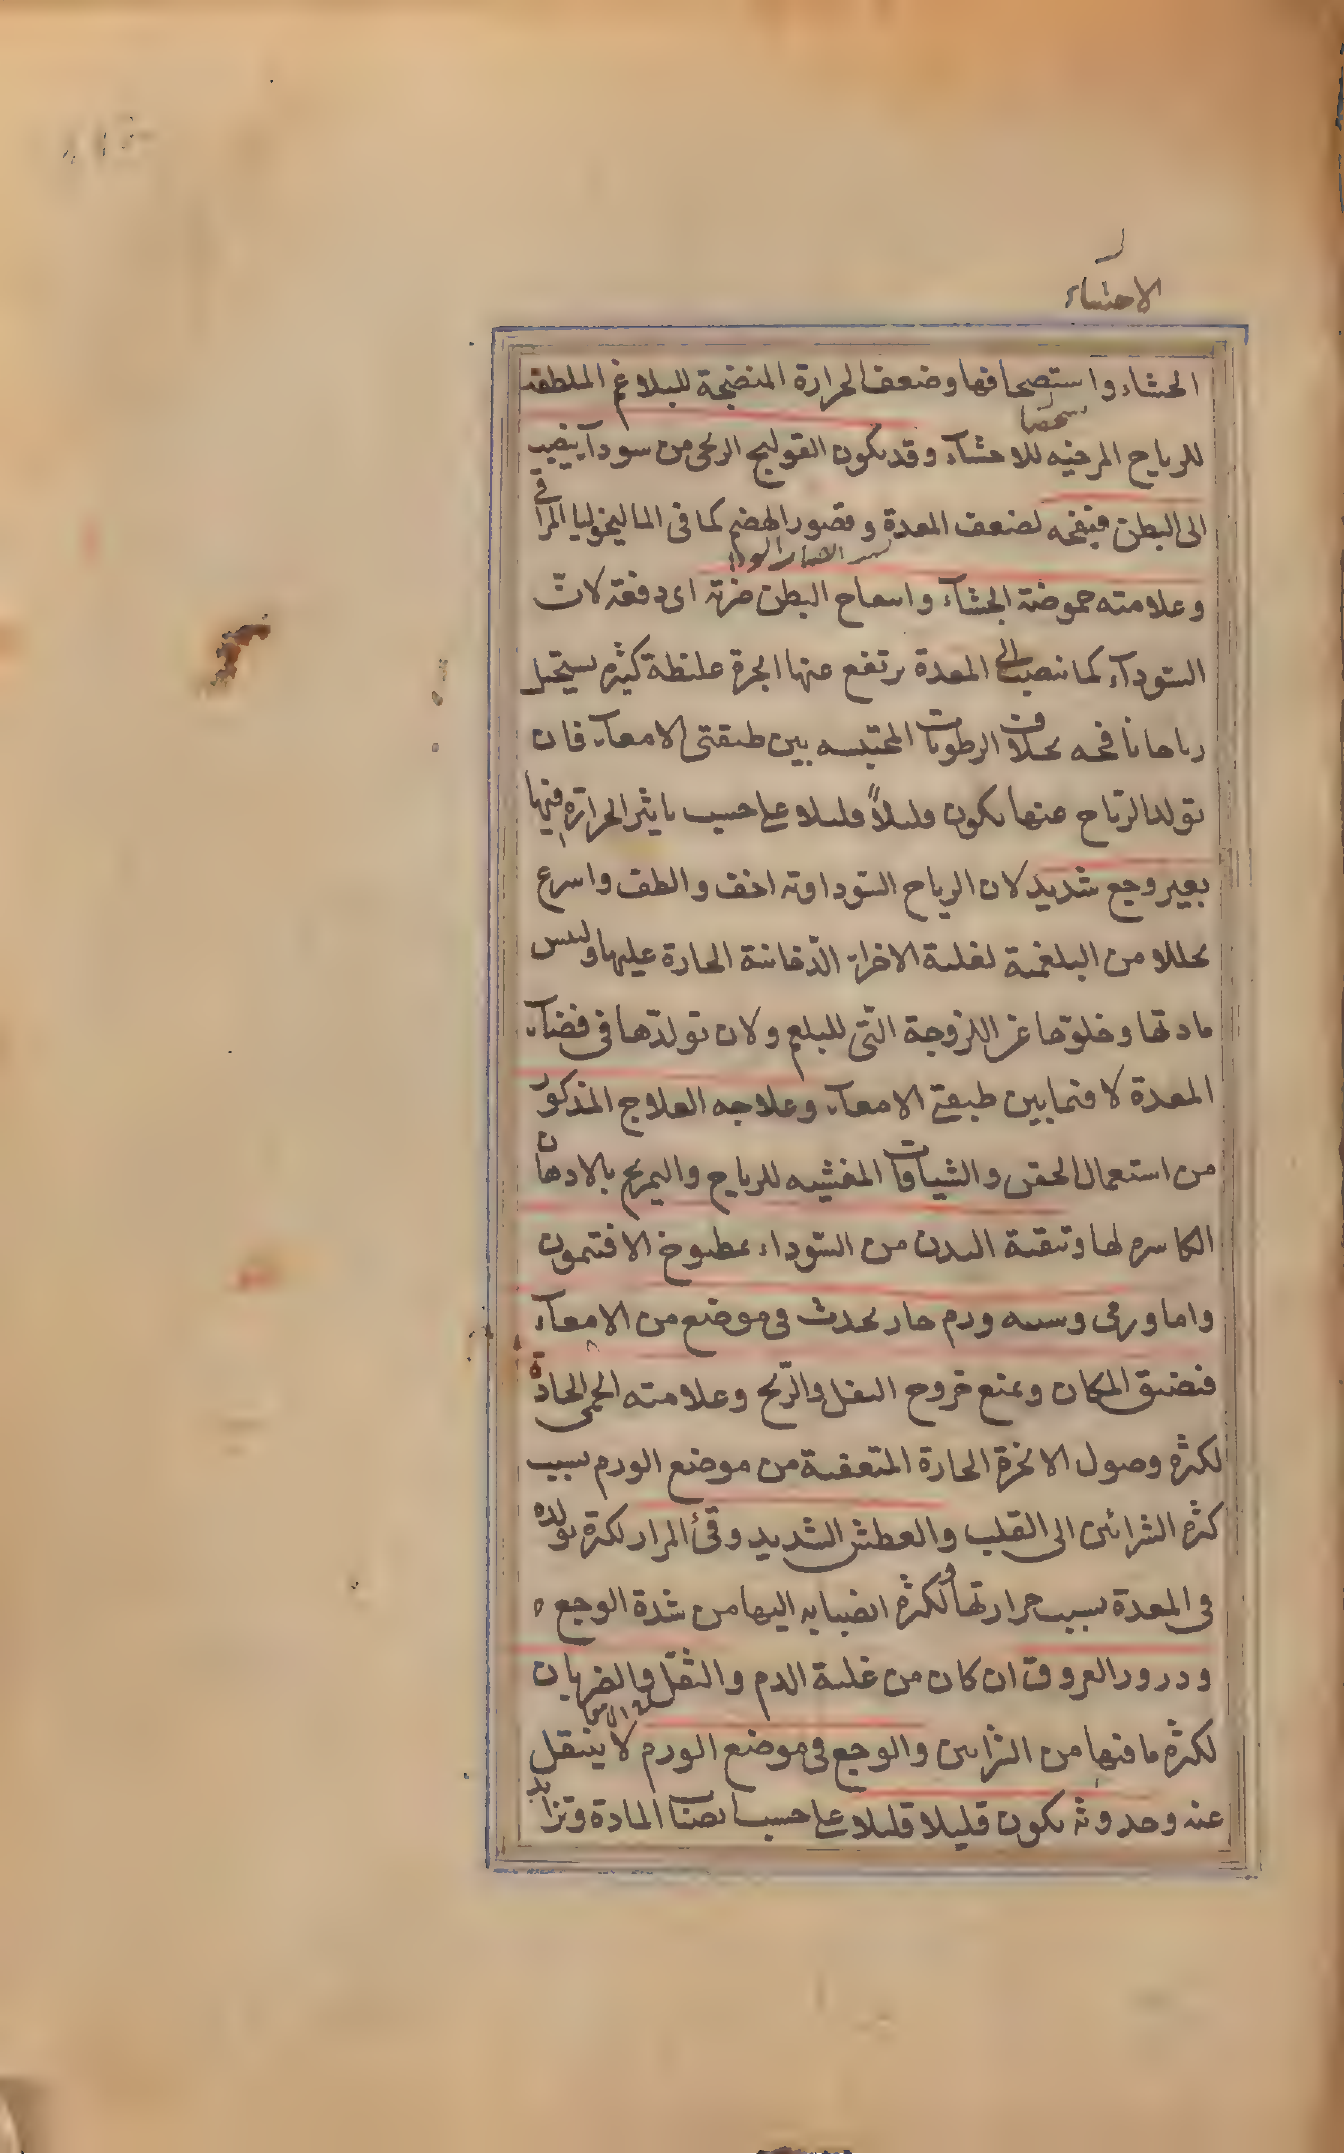 الاحشاء
الحشاء واستصحافها وضعف الحرارة المنضجة للبلاغم الملطفة
للرياح المرخيه للاحشآء وقد يكون القولنج الريحى من سودآء ينصب
الى البطن فينفخه لضعف المعدة وقصور الهضم كما فى الماليخوليا المراقى
وعلامته حموضة الجشآء وانتفاخ البطن ضربة اى دفعة لانّ
السّودآء كما تنصب الى المعدة يرتفع عنها ابخرة غليظة كثيره يستحيل
رياحا نافخه بخلاف الرطوبات المحتبسه بين طبقتى الامعآء فان
تولد الرّياح عنها يكون قليلاً قليلا على حسب تاثير الحرارة فيها
بغير وجع شديد لان الرياح السّوداوية اخف والطف واسرع
تحللا من البلغمية لغلبة الاجزاء الدّخانية الحارة عليها وليبس
مادتها وخلوّها عن اللزوجة الّتى للبلغم ولان تولدّها فى فضآء
المعدة لا فيما بين طبقتى الامعآء وعلاجه العلاج المذكور
من استعمال الحقن والشيافات المفشيه للرياح والتمريخ بالادهان
الكاسره لها وتنقية البدن من السّوداء بمطبوخ الافتيمون
واما ورمى وسببه ورم حار يحدث فى موضع من الامعآء
فيضيق المكان ويمنع خروج الثفل والرّيح وعلامته الحمى الحادة
لكثرة وصول الابخرة الحارة المتعفنة من موضع الورم بسبب
كثرة الشرائين الى القلب والعطش الشديد وقئ المرار لكثرة تولده
فى المعدة بسبب حرارتها ولكثرة انصبابه اليها من شدة الوجع ه
ودرور العروق ان كان من غلبة الدم والثقل والضربان
لكثرة ما فيها من الشرايين والوجع فى موضع الورم لا ينتقل
عنه وحدوثه يكون قليلا قليلا على حسب انصباب المادة وتزايد